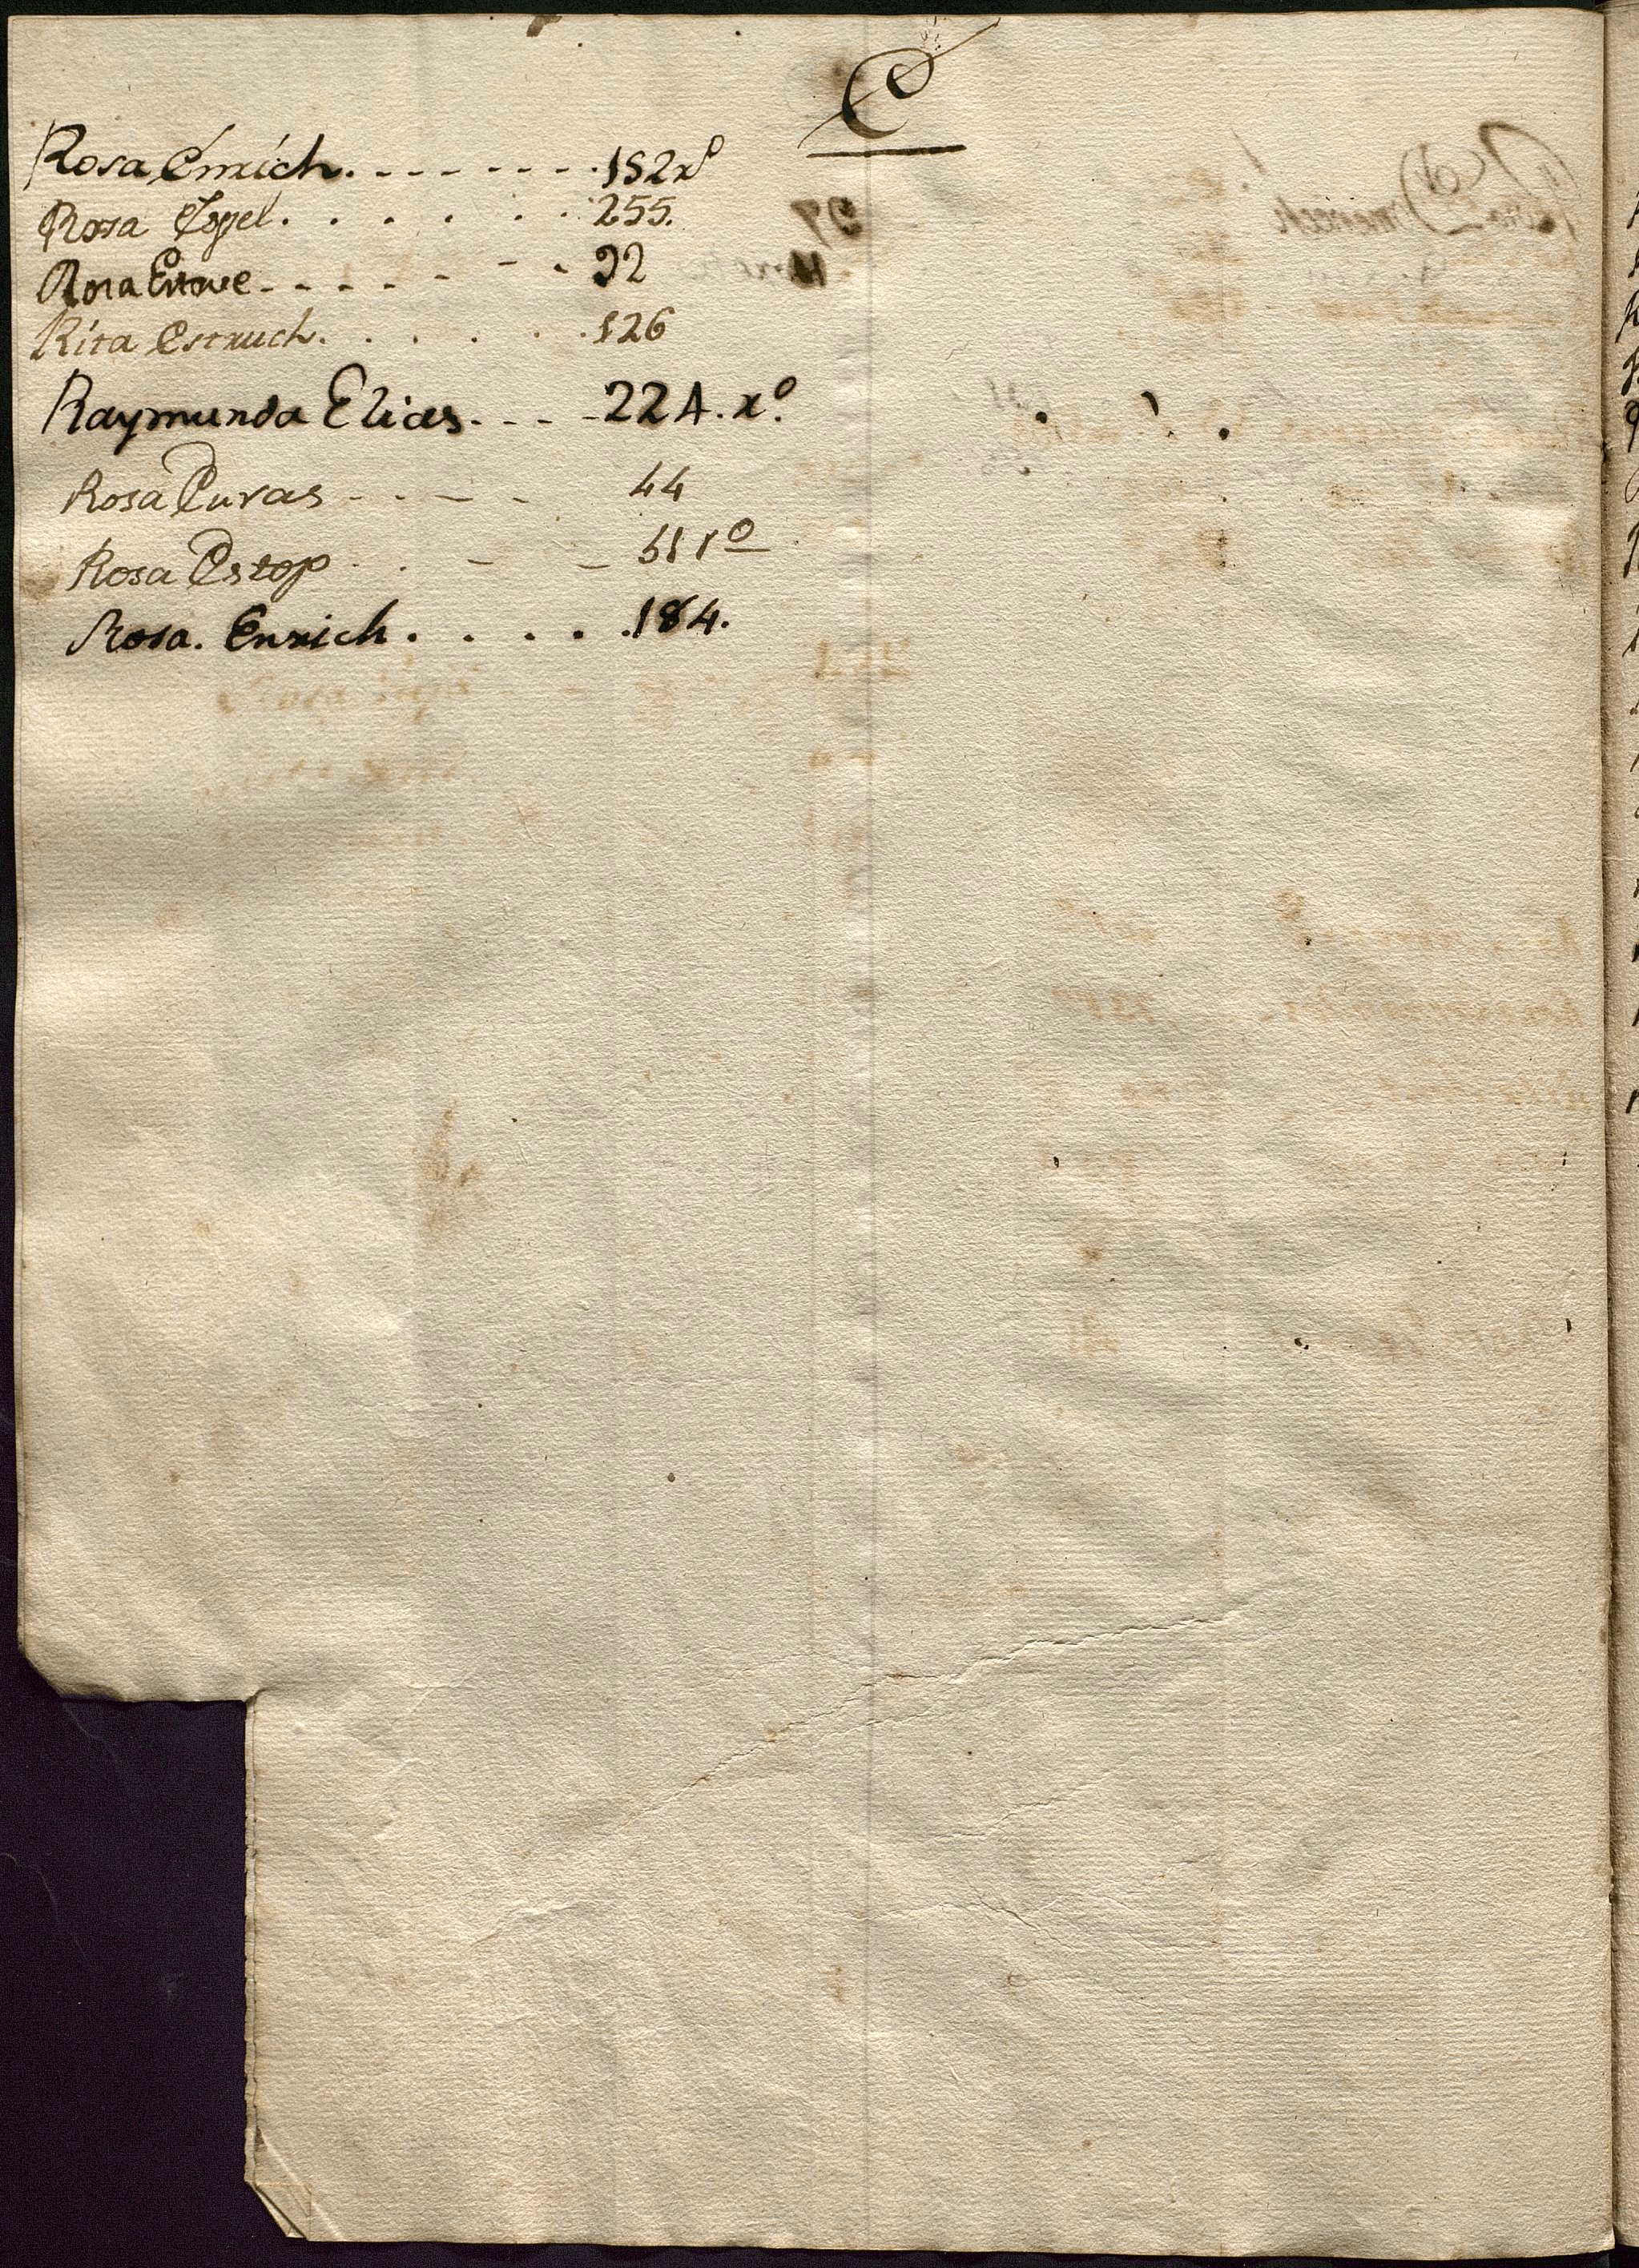 E
Rosa Enrich. - - - - - - - - 152 rº
Rosa Espel. . . . . . . 255.
Rosa Esteve - - - - - - - 92
Rita Estruch. . . . . . . 126
Raymunda Elias. - - - - 224. rº.
Rosa Euras - - - - 44
Rosa Estop . . - - 51 rº
Rosa. Enrich . . . . . 184.